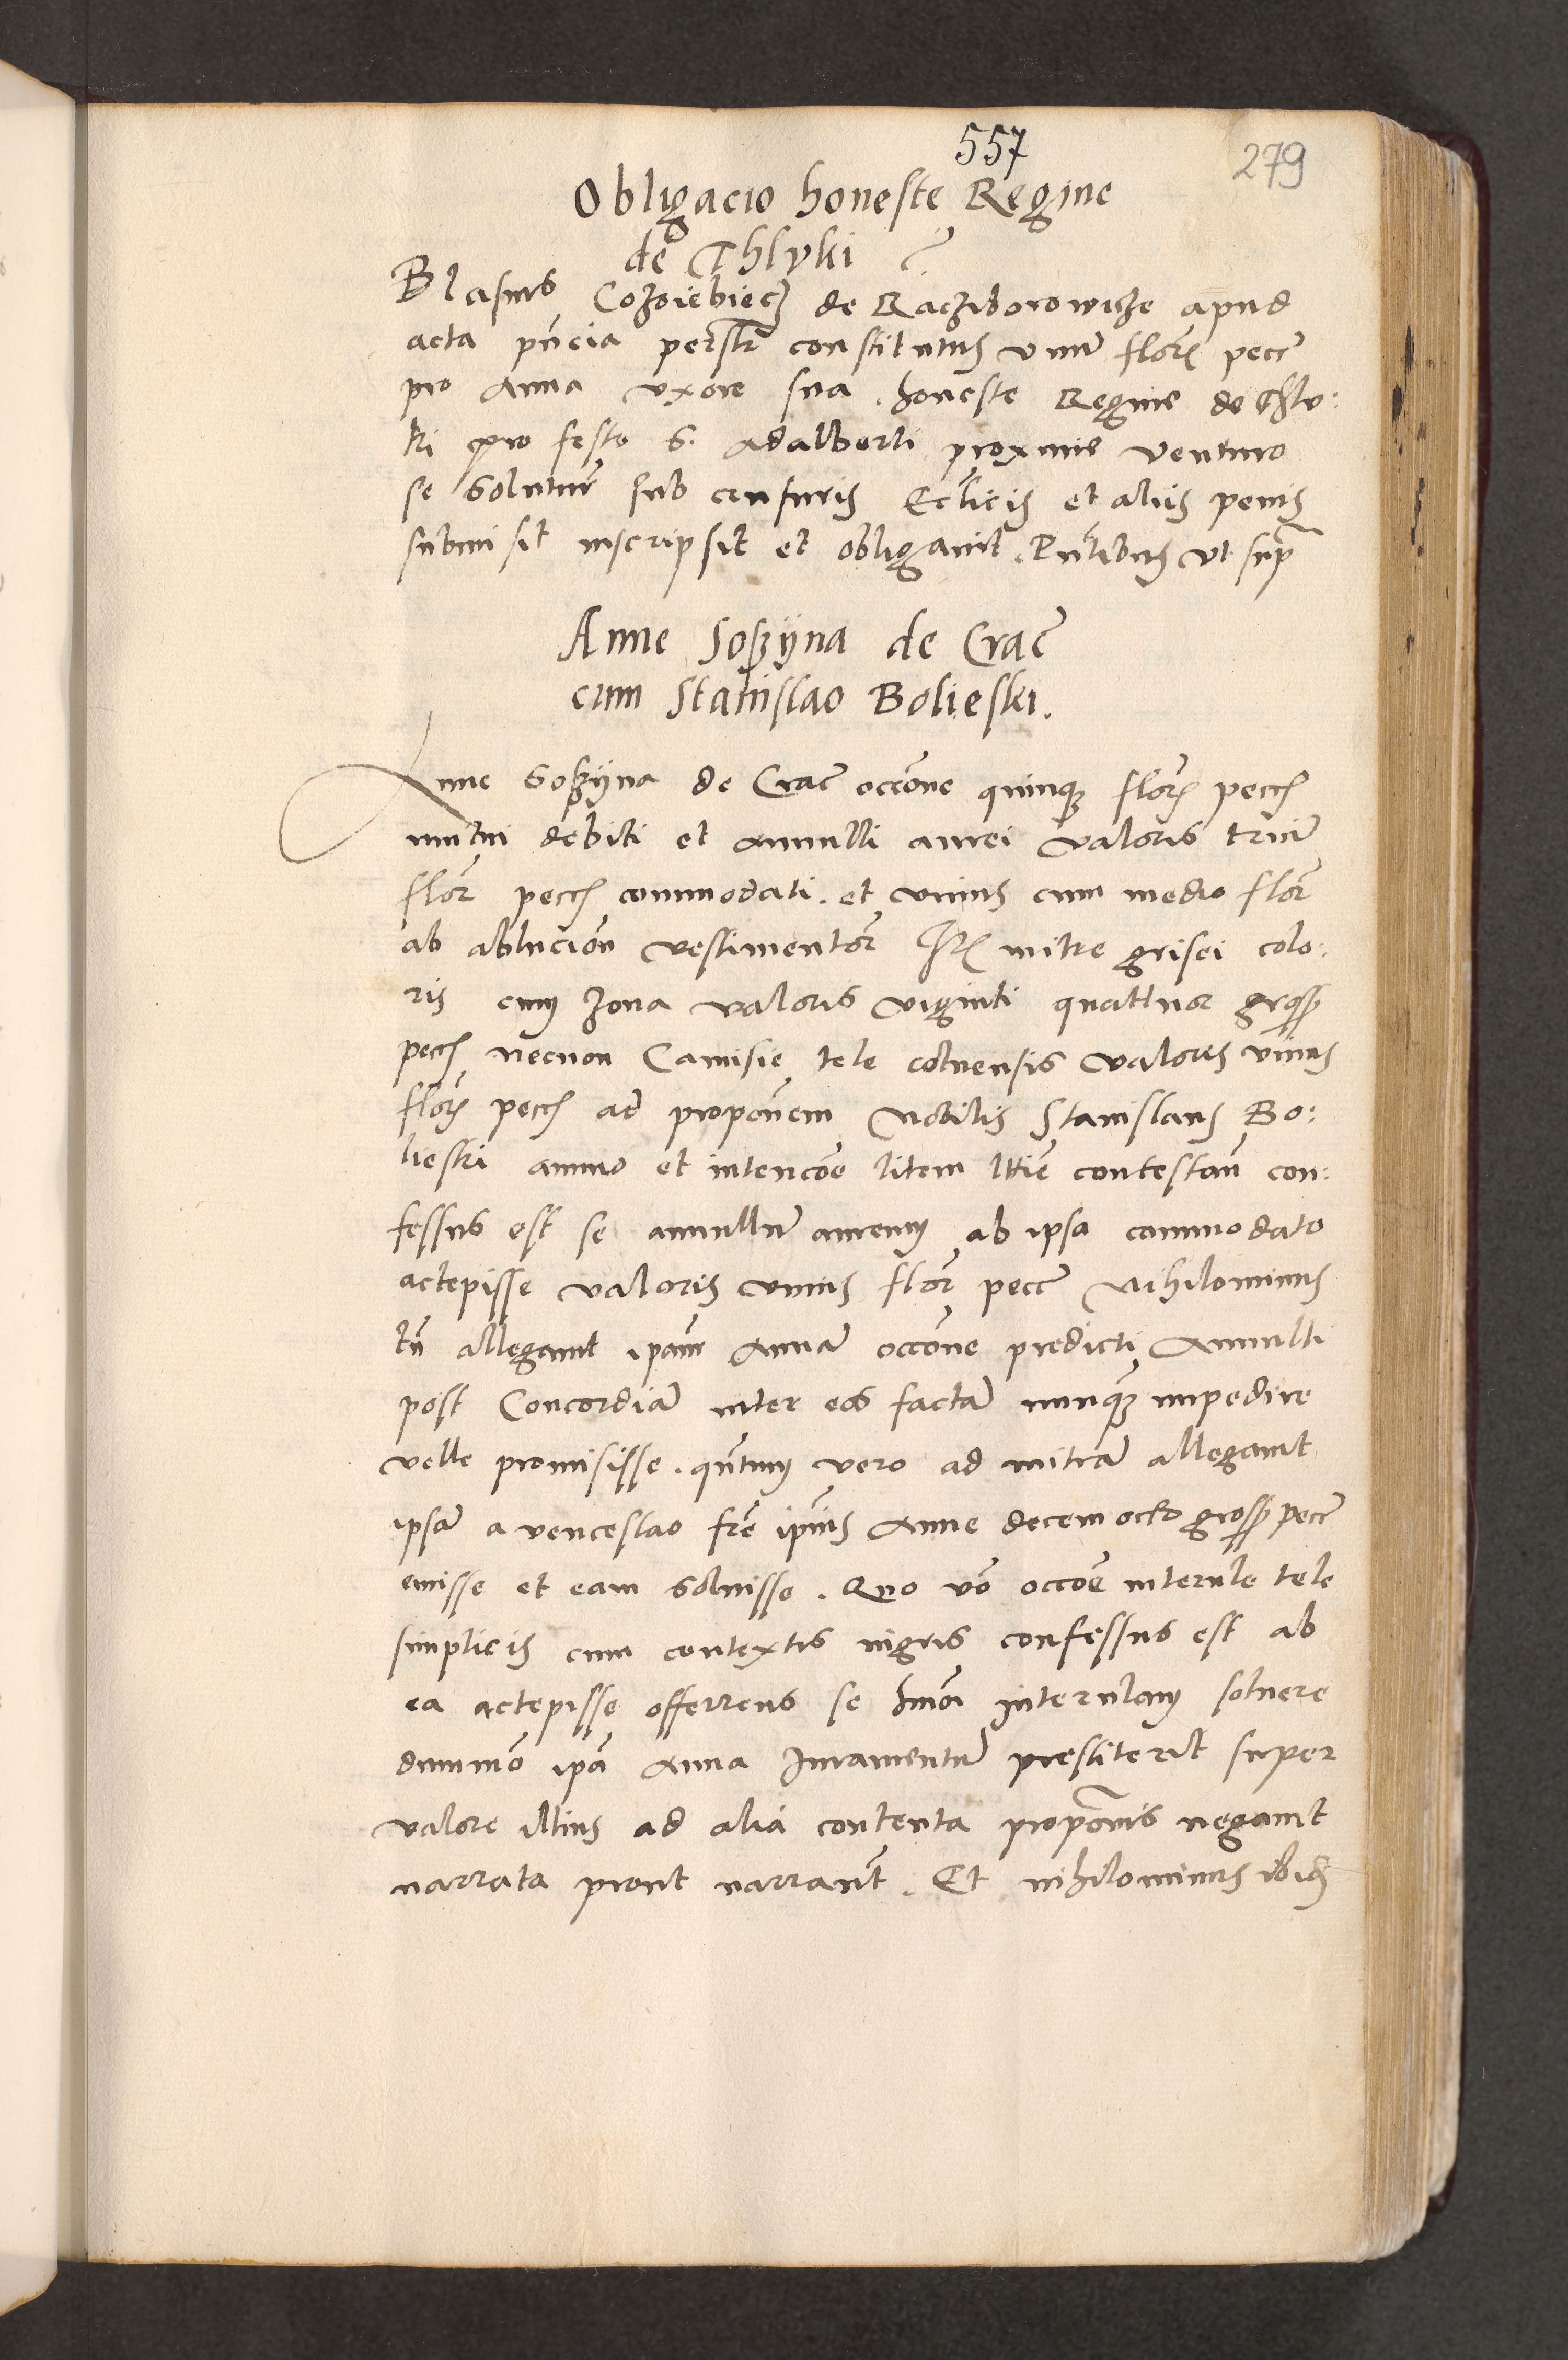 557
279
Obligacio honeste Regine
de Thlyki
Blasius Cozoiebiecz de Raciborowicze apud
acta pñcia persolr constitutus vnũ florẽ pecc̃
pro Anna vxore sua honeste Regine de Thly:
ki pro festo S. Adalberti proxime venturo
se soluturũ sub censuris Eccl̃icis et aliis penis
submisit inscripsit et obligauit. Pñtibus vt supra
Anne Soßÿna de Crac̃
cum Stanislao Bolieski.
Anne Soßÿna de Crac̃ occõne quinqꝫ florẽ pecc̃
mutui debiti et annulli aurei valoris triũ
florẽ pecc̃ commodati. et vnius cum medio florẽ
ab ablucioñ vestimentorꝫ Itẽ mitre grisei colo:
ris cum zona valoris viginti quattuor gross
pecc̃ necnon Camisie tele colnensis valoris vnius
florẽ pecc̃ ad proponem Nobilis Stanislaus Bo:
lieski animo et intencõe litem lttĩe contestañ con:
fessus est se annullũ aureum ab ipsa commodato
accepisse valoris vnius florẽ pecc̃ Nihilominus
tñ allegauit ipam Annã occõne predicti Annulli
post Concordiã inter eos factã nunqꝫ impedire
velle promisisse. qñtum vero ad mitrã allegauit
ipsã a venceslao frẽ ipius Anne decem octo gross pecc̃
emisse et eam soluisse. Quo vo occõe interule tele
simplicis cum contextis nigris confessus est ab
ea accepisse offerrens se hmõi interulam soluere
dummõ ipã Anna Iuramentũ prestiterit super
valore illius ad alia contenta propõnis negauit
narrata prout narrant̃. Et nihilominus ibidẽ